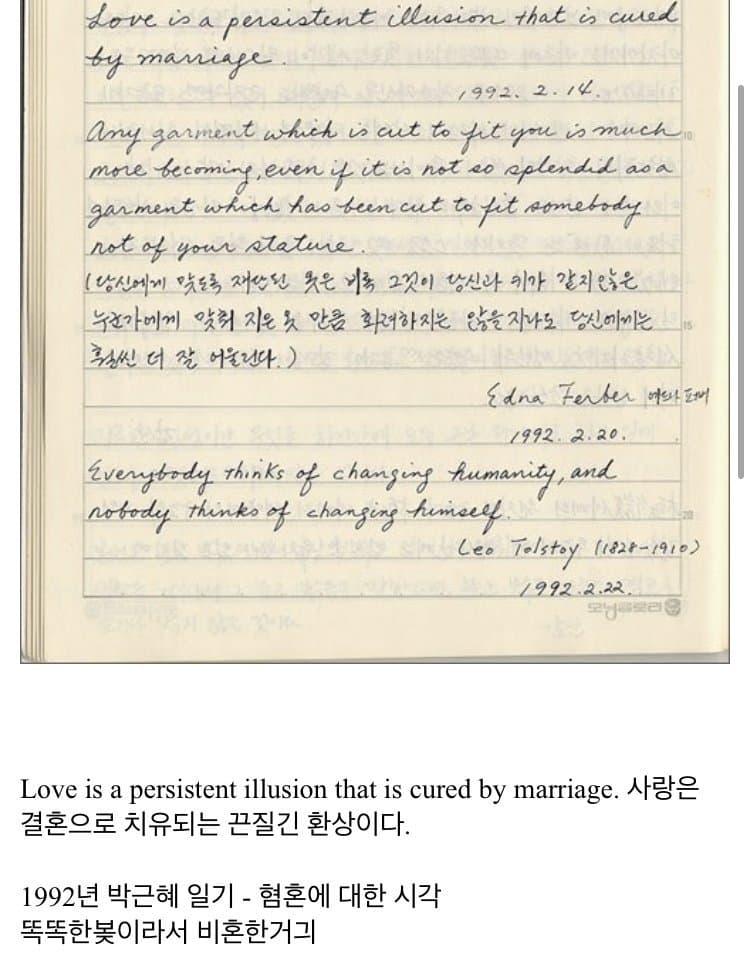 Love is a persistent illusion that is cured
by marriage.
1992. 2. 14.
Any garment which is cut to fit you is much
more becoming, even if it is not so splendid as a
garment which has been cut to fit somebody
not of your stature.
(당신에게 맞도록 재단된 옷은 비록 그것이 당신과 키가 같지않은
누군가에게 맞춰 지은 옷 만큼 화려하지는 않을지라도 당신에게는
훨씬 더 잘 어울린다.)
Edna Ferber 에드나 퍼버
1992. 2. 20.
Everybody thinks of changing humanity, and
nobody thinks of changing himself.
Leo Tolstoy (1828-1910)
1992. 2. 22.
모닝글로리
Love is a persistent illusion that is cured by marriage. 사랑은
결혼으로 치유되는 끈질긴 환상이다.
1992년 박근혜 일기 - 혐혼에 대한 시각
똑똑한봊이라서 비혼한거긔